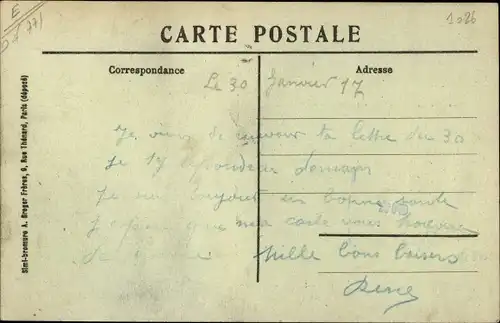 E
1026
CARTE POSTALE
Correspondance
Adresse
Simi-bromure A. Breger Frères, 9, Rue Thénard, Paris (déposé)
Le 30 Janvier 17
Je viens de recevoir ta lettre du 30
Je
demain
Je suis toujours en bonne santé
J'espère que ma carte vous trouvera
de même Mille bons baisers
René